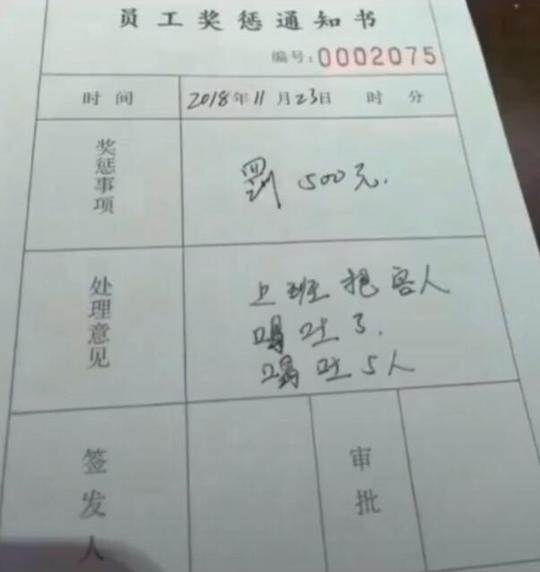 员工奖惩通知书
编号:0002075
时间 2018年11月23日 时 分
奖惩事项 罚500元.
处理意见 上班把客人
喝吐了.
喝吐5人
签发人 审批